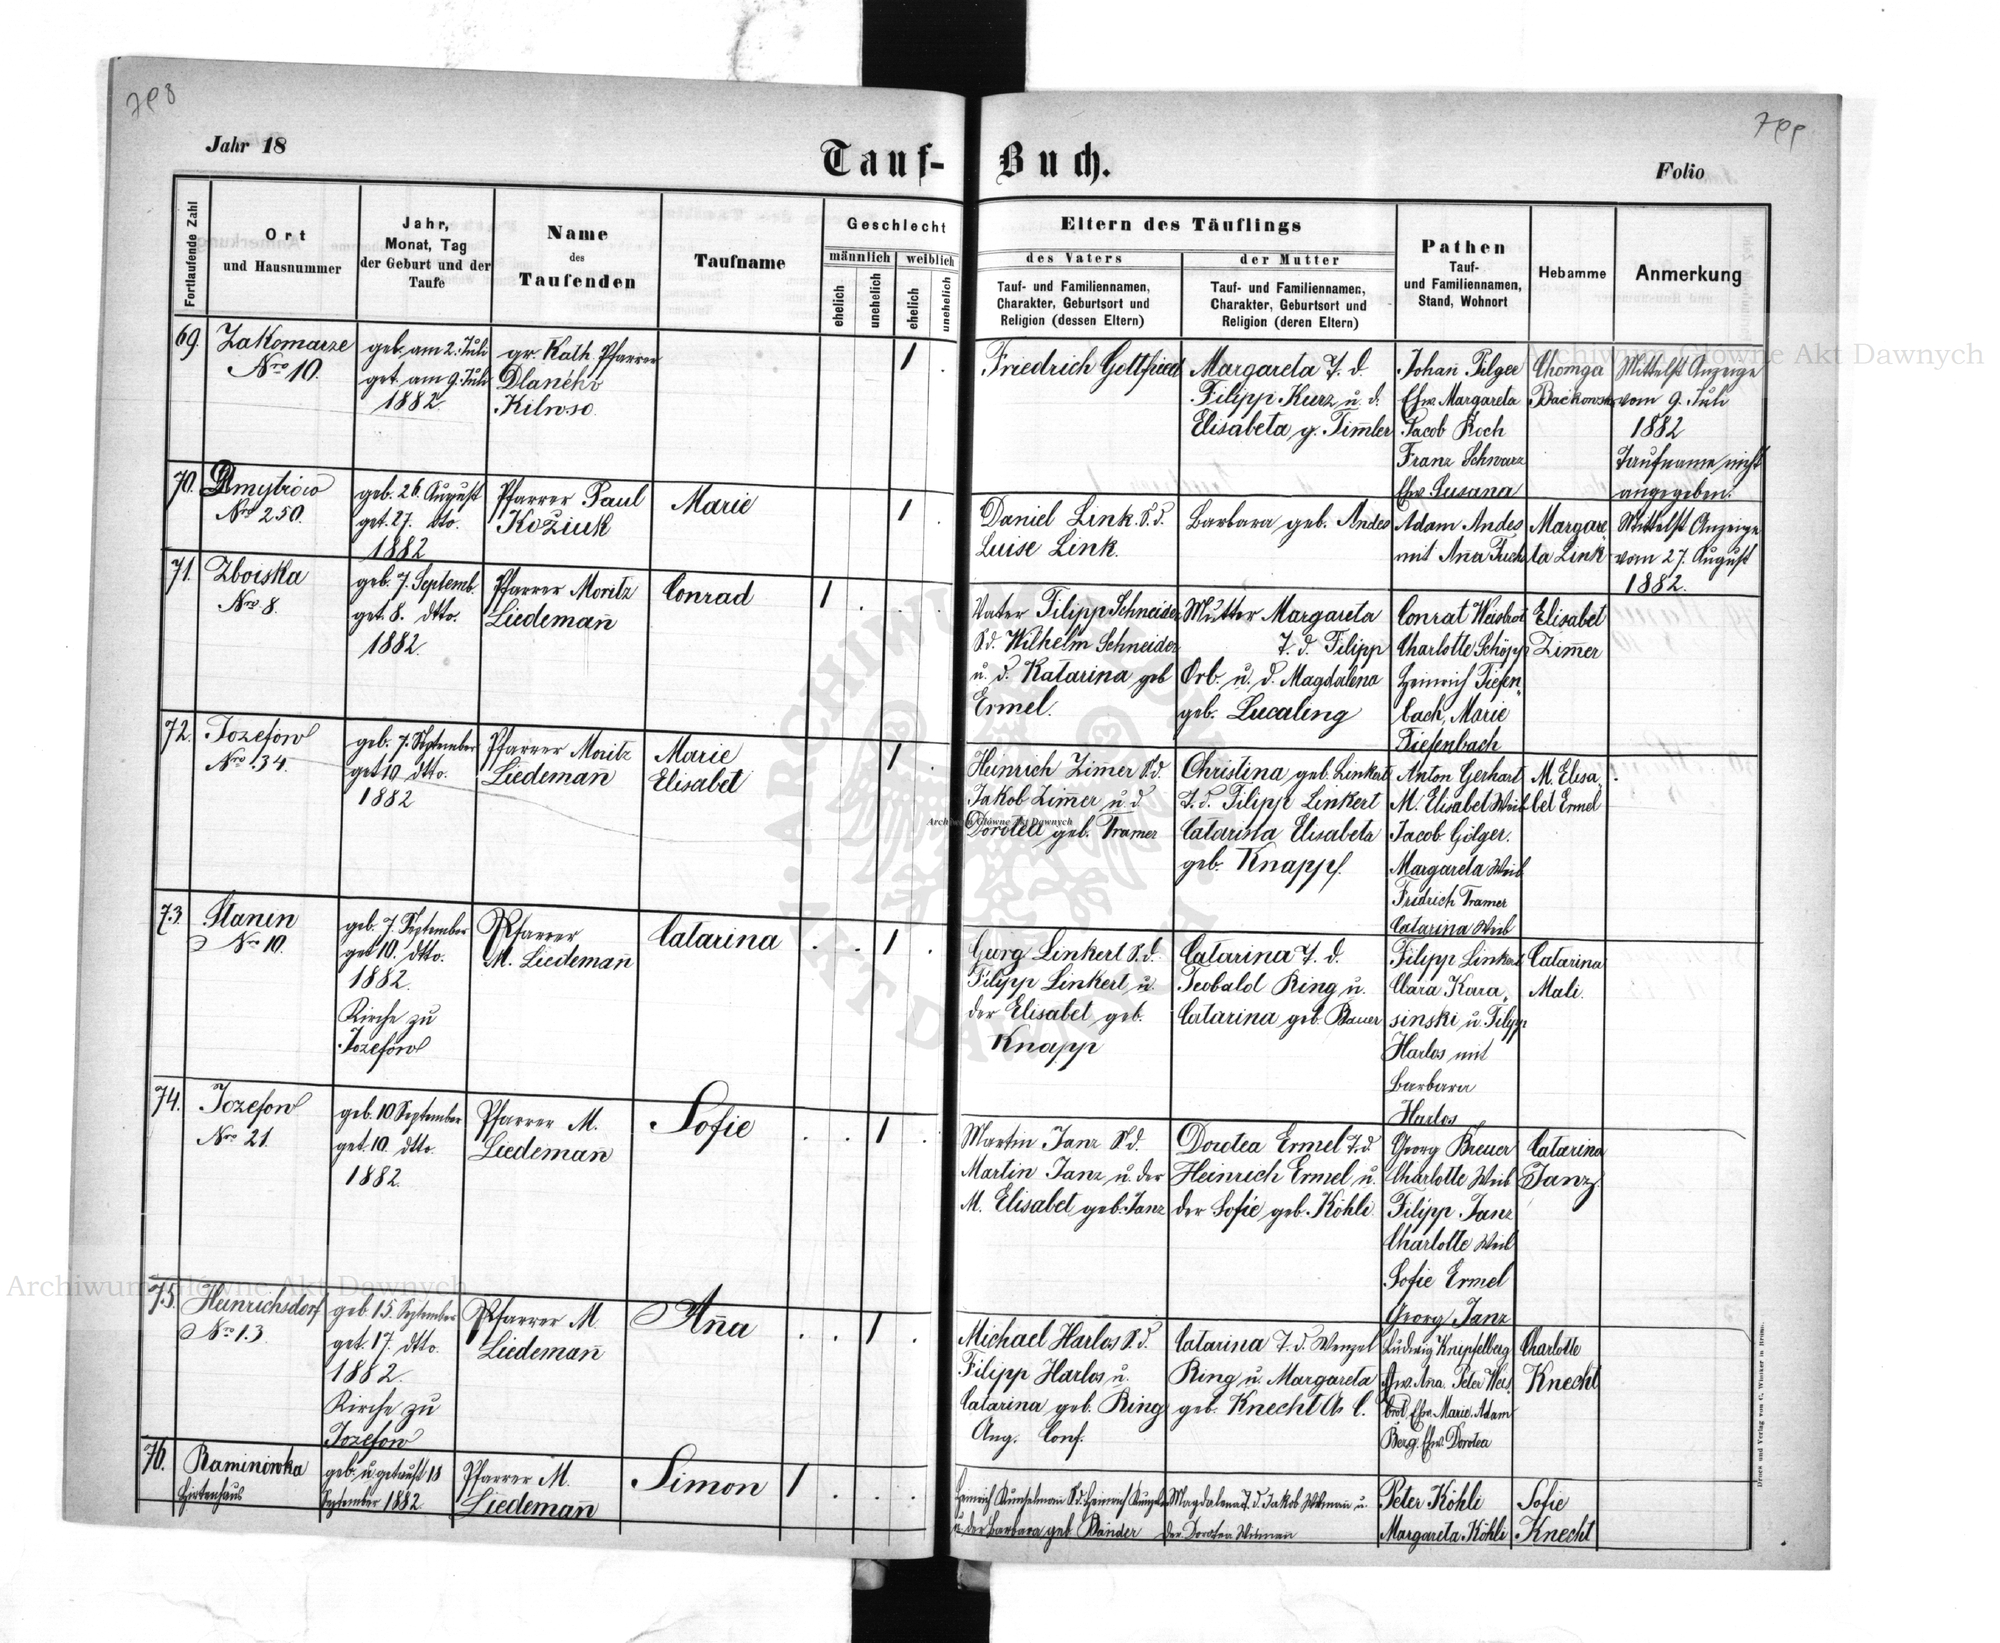 798
799
Jahr 18
Tauf-Buch.
Folio
Fortlaufende Zahl
Ort
und Hausnummer
Jahr,
Monat, Tag
der Geburt und der
Taufe
Name
des
Taufenden
Taufname
Geschlecht
männlich
weiblich
ehelich
unehelich
ehelich
unehelich
Eltern des Täuflings
des Vaters
Tauf- und Familiennamen,
Charakter, Geburtsort und
Religion (dessen Eltern)
der Mutter
Tauf- und Familiennamen,
Charakter, Geburtsort und
Religion (deren Eltern)
Pathen
Tauf-
und Familiennamen,
Stand, Wohnort
Hebamme
Anmerkung
69.
Zakomarze
Nro 10.
geb. am 2. Juli
get. am 9. Juli
1882.
gr. Kath. Pfarrer
1
Friedrich Gottfried
Margareta T. d.
Filipp Kurz u. d.
Elisabeta g. Tim̄ler
Johan Pilger
Ehw. Margareta
Jacob Koch
Franz Schwarz
Ehw. Susana
Mittelst Anzeige
vom 9. Juli
1882
Taufname nicht
angegeben.
70.
Dmytrów
Nro 250.
geb. 26. August
get. 27. dto.
1882
Pfarrer Paul
Koziuk
Marie
1
Daniel Link. S. d.
Luise Link.
Barbara geb. Andes
Adam Andes
mit Ana Fuchs
Margare
ta Link
Mittelst Anzeige
vom 27. August
1882.
71.
Zboiska
Nro 8.
geb. 7. Septemb.
get. 8. dtto.
1882.
Pfarrer Moritz
Liedeman̄
Conrad
1
Vater Filipp Schneider
S. d. Wilhelm Schneider
u. d. Katarina geb
Ermel.
Mutter Margareta
T. d. Filipp
Orb. u. d. Magdalena
geb. Lucaling
Conrat Weisbrot
Charlotte Schöpp
Heinrich Tiefen„
bach, Marie
Tiefenbach
Elisabet
Zim̄er
72.
Jozefow
Nro 34.
geb. 7. September
get 10 dtto.
1882
Pfarrer Moritz
Liedeman̄
Marie
Elisabet
1
Heinrich Zim̄er S. d.
Jakob Zim̄er u. d.
Dorotea geb. Tramer
Christina geb. Linkert
T. d. Filipp Linkert
Catarina Elisabeta
geb. Knappf.
Anton Gerhart
M. Elisabet Weib
Jacob Gilger.
Margareta Weib
Fridrich Tramer
Catarina Weib
M. Elisa„
bet Ermel
73.
Stanin
Nro 10.
geb. 7. September
get 10. dtto.
1882.
Kirche zu
Jozefow
Pfarrer
M. Liedeman̄
Catarina
1
Georg Linkert S. d.
Filipp Linkert u.
der Elisabet geb.
Knapp
Catarina T. d.
Teobald Ring u.
Catarina geb. Bauer
Filipp Linkert
Clara Kara„
sinski u. Filipp
Harlos mit
Barbara
Harlos
Catarina
Mali.
74.
Jozefow
Nro 21.
geb. 10 September
get. 10. dtto.
1882.
Pfarrer M.
Liedeman̄
Sofie
1
Martin Janz S. d.
Martin Janz u. der
M. Elisabet geb. Janz
Dorotea Ermel T. d
Heinrich Ermel u.
der Sofie geb. Köhli.
Georg Breuer
Charlotte Weib
Filipp Janz
Charlotte Weib
Sofie Ermel
Georg Janz
Catarina
Janz.
75.
Heinrichsdorf
Nro 13.
geb. 15. September
get. 17. dtto.
1882.
Kirche zu
Jozefow
Pfarrer M.
Liedeman̄
An̄a
1
Michael Harlos S. d.
Filipp Harlos u.
Catarina geb. Ring
Aug. Conf.
Catarina T. d. Wenzel
Ring u. Margareta
geb. Knecht A. C.
Ludwig Knipfelberg
Ehw. Ana. Peter Weis
brot Ehw. Marie. Adam
Berg. Ehw. Dorotea
Charlotte
Knecht
76.
Kaminówka
Hirtenhaus
geb. u. getauft 18
September 1882.
Pfarrer M.
Liedeman̄
Simon
1
Heinrich Kunselman S. d. Heinrich
u. der Barbara geb. Bänder
Magdalena T. d. Jakob u.
der Dorotea
Peter Köhli
Margareta Köhli
Sofie
Knecht
Druck und Verlag von C. Winiker in Brünn.
Archiwum Główne Akt Dawnych
Archiwum Główne Akt Dawnych
Archiwum Główne Akt Dawnych
ARCHIWUM GŁÓWNE AKT DAWNYCH